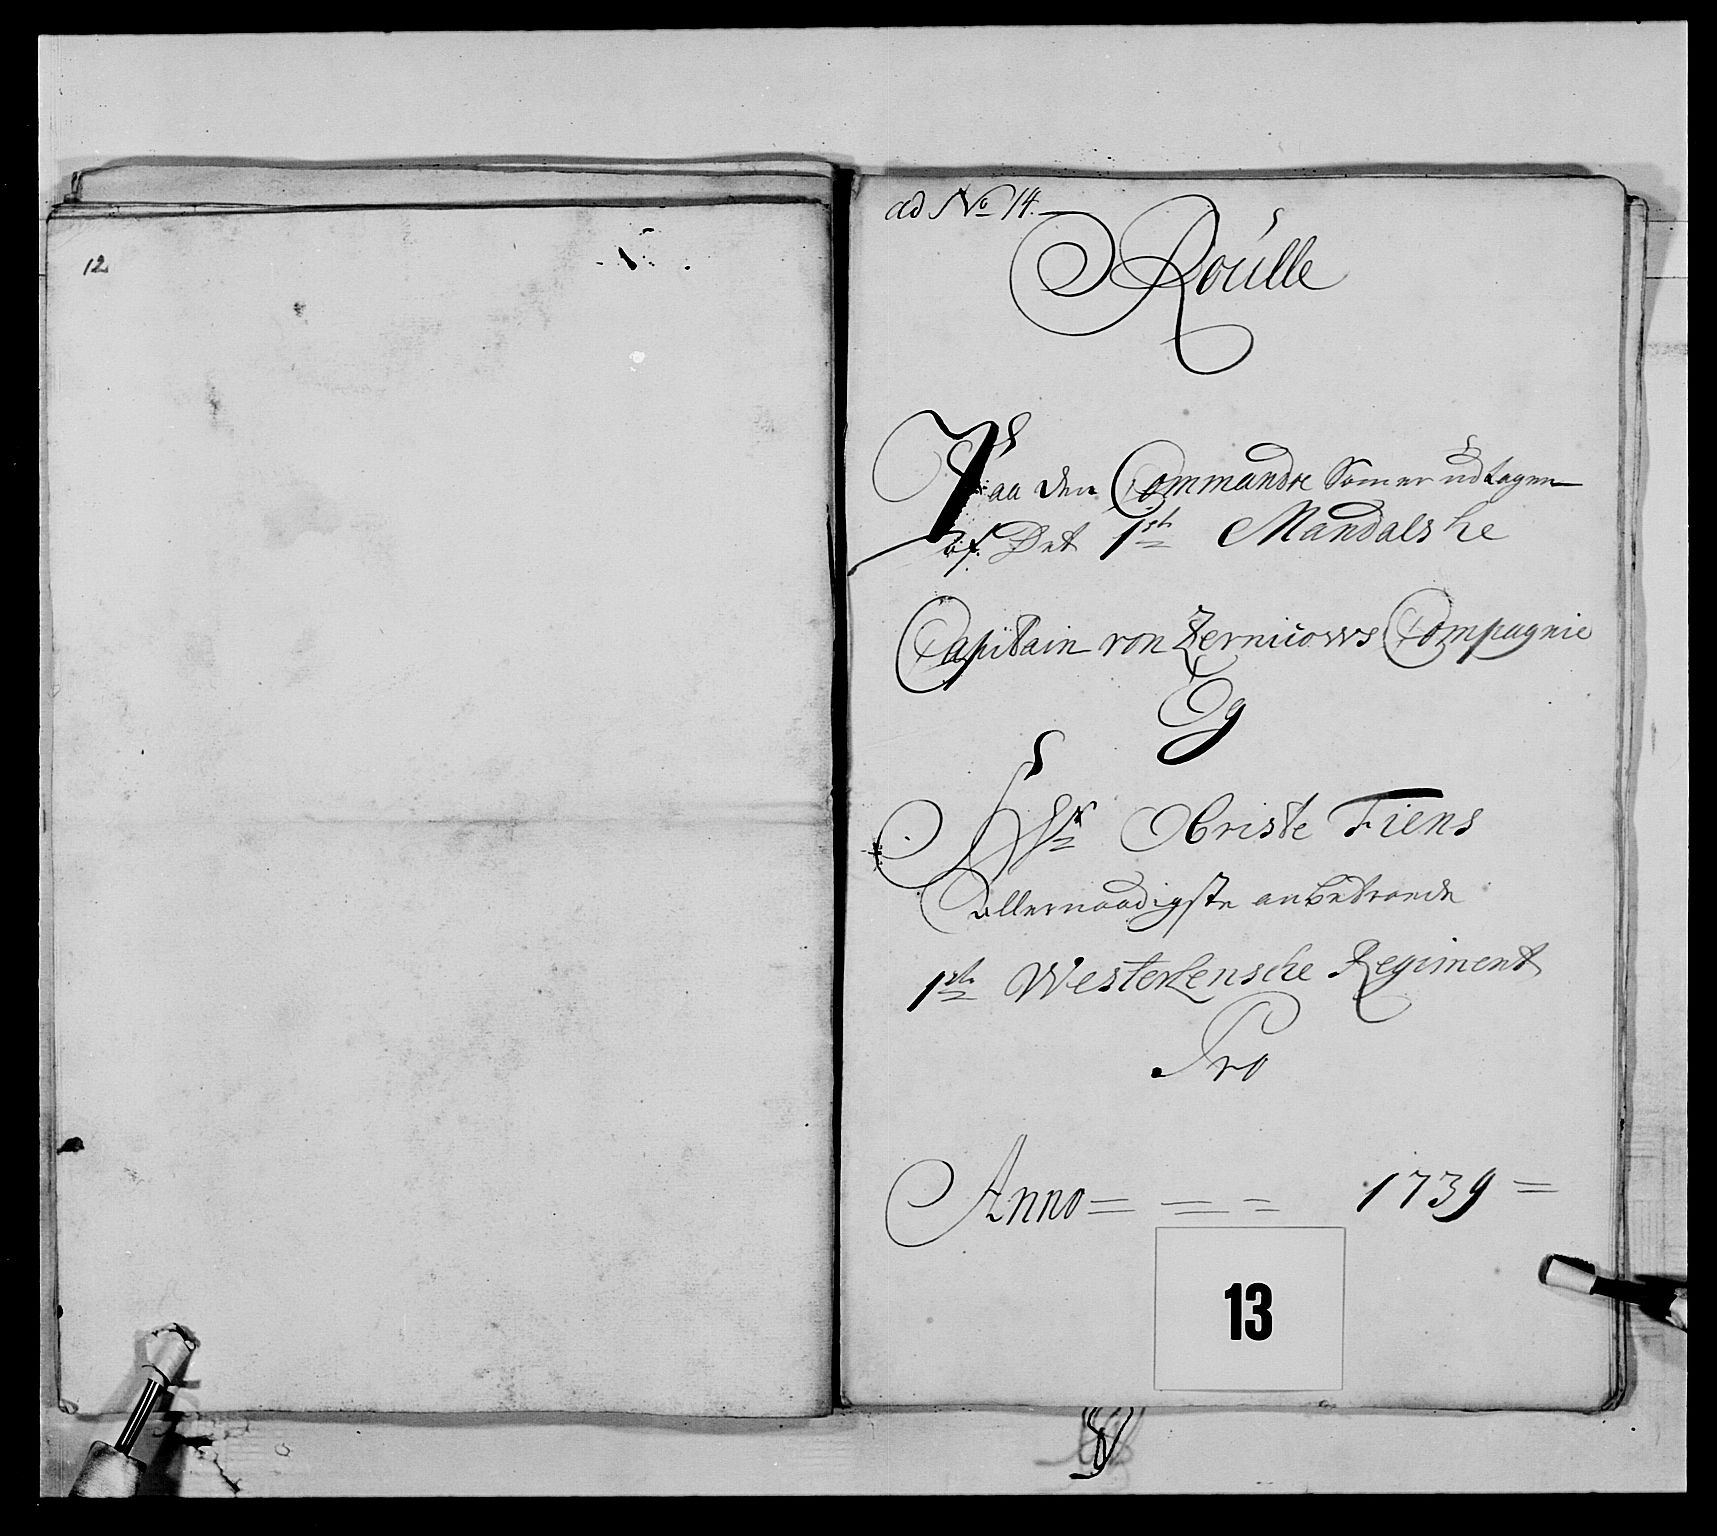 12
ad No 14.
Roulle
Paa den Commandre Som er udtagen
af Det 1ste Mandalske
Capitain von Zernicows Compagnie
Og
Hr Obriste Fiens
allernaadigste anbetroede
1ste Westerlensche Regiment
Pro
Anno = = = 1739 =
13